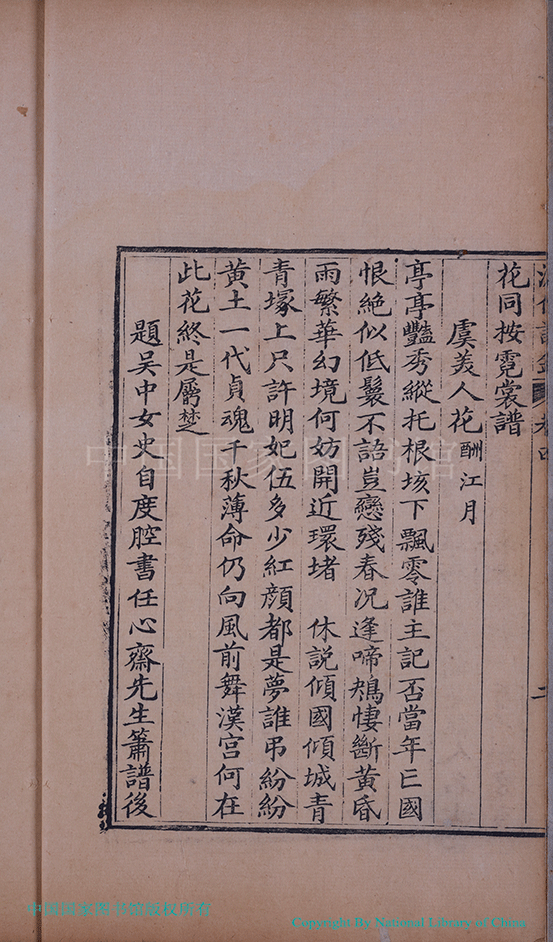 花同按霓裳譜
虞美人花 酬江月
亭亭豔秀縱托根垓下飄零誰主記否當年亡國
恨絶似低鬟不語豈戀殘春况逢啼鴂悽斷黄昏
雨繁華幻境何妨開近環堵　休説傾國傾城青
青塚上只許明妃伍多少紅顔都是夢誰弔紛紛
黄土一代貞魂千秋薄命仍向風前舞漢宫何在
此花終是屬楚
題吴中女史自度腔書任心齋先生簫譜後
中国国家图书馆
中国国家图书馆版权所有
Copyright By National Library of China